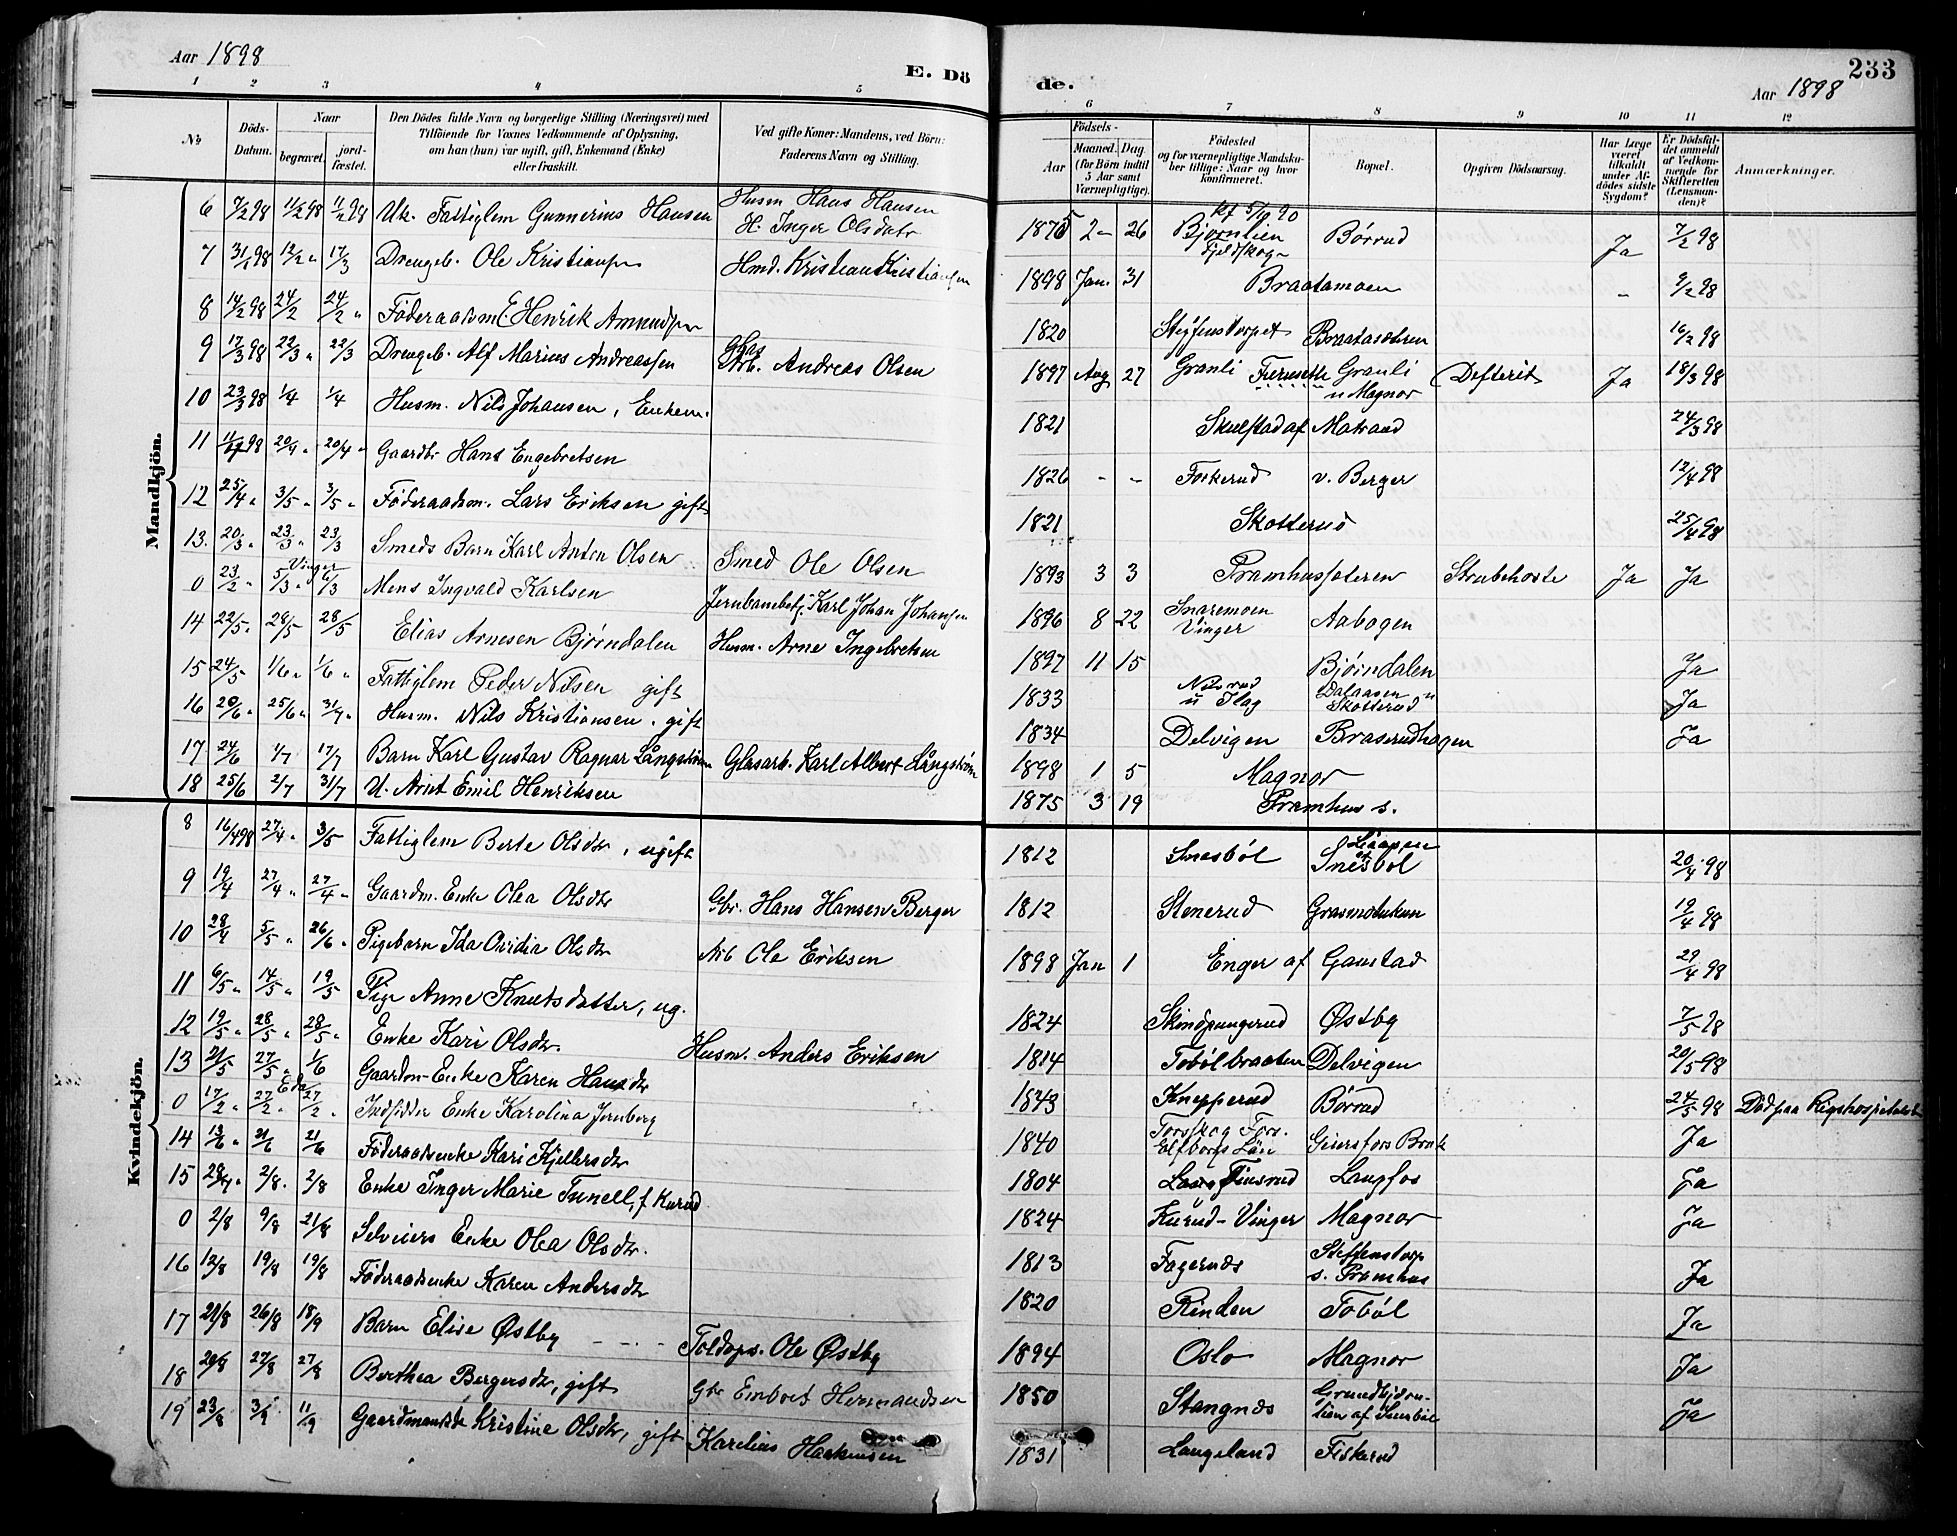 Aar 1898
E. Dö
de.
Aar 1898
233
1 2 3 4 5
6 7 8 9 10 11 12
No
Döds-Datum.
Naar
begravet.
jord-fæstet.
Den Dödes fulde Navn og borgerlige Stilling (Næringsvei) med
Tilföiende for Voxnes Vedkommende af Oplysning,
om han (hun) var ugift, gift, Enkemand (Enke)
eller fraskilt.
Ved gifte Koner: Mandens, ved Börn:
Faderens Navn og Stilling.
Födsels-
Aar
Maaned. Dag
(for Börn indtil
5 Aar samt
Værnepligtige).
Födested
og for værnepligtige Mandska-
ber tillige: Naar og hvor
konfirmeret.
Bopæl.
Opgiven Dödsaarsag.
Har Læge
været
tilkaldt
under Af-
dödes sidste
Sygdom?
Er Dödsfal-
det anmeldt
af Vedkom-
mende for
Skifteretten
(Lensman-
den)?
Anmærkninger.
Mandkjön.
6 7/2 98 11/2 98 11/2 98 Uk. Fattiglem Gunnerius Hansen Husm Hans Hansen H. Inger Olsdatr 1875 2 26 kf 5/10 90 Bjørnlien Fjeldskogn Børrud Ja 7/2 98
7 31/1 98 13/2 17/3 Drengeb. Ole Kristiansen Hmd. Kristian Kristiansen 1898 Jan. 31 Braatamoen - 9/2 98
8 14/2 98 24/2 24/2 Föderaadsm. E. Henrik Amundsen 1820 Steffenstorpet Braatasæteren 16/2 98
9 17/3 98 22/3 22/3 Drengeb. Alf Marius Andreassen Glas Arb. Andreas Olsen 1897 Aug 27 Granli Granli u Magnor Defterit Ja 18/3 98
10 23/3 98 1/4 1/4 Husm. Nils Johansen, Enkem. 1821 Skulstad af Matrand 24/3 98
11 11/4 98 20/4 20/4 Gaardbr Hans Engebretsen 1826 - - Forkerud v. Berger 12/4 98
12 25/4 3/5 3/5 Föderaadsm. Lars Eriksen gift 1821 Skotterud 25/4 98
13. 20/3 23/3 23/3 Smeds Barn Karl Anton Olsen Smed Ole Olsen 1893 3 3 Pramhussæteren Strubehoste Ja Ja
0 23/2 5/3 Vinger 6/3 Mons Ingvald Karlsen Jernbanebetj. Karl Johan Johansen 1896 8 22 Snaremoen Vinger Aabogen
14 22/5 28/5 28/5 Elias Arnesen Bjørndalen Husm. Arne Ingebretsen 1897 11 15 Bjørndalen Ja
15 24/5 1/6 1/6 Fattiglem Peder Nilsen gift 1833 Nilsrud u Flag Dalaasen u Skotterud Ja
16 20/6 25/6 31/7 Husm. Nils Kristiansen. gift 1834 Delvigen Braserudhagen Ja
17 24/6 1/7 17/7 Barn Karl Gustav Ragnar Långström Glasarb. Karl Albert Långström 1898 1 5 Magnor
18 25/6 2/7 31/7 U. Arnt Emil Henriksen 1875 3 19 Pramhus s.
Kvindekjön.
8 16/4 98 27/4 3/5 Fattiglem Berte Olsdtr, ugift 1812 Snesböl Snesböl 20/4 98
9 19/4 27/4 27/4 Gaardm. Enke Olea Olsdtr Gbr. Hans Hansen Berger 1812 Stenerud 19/4 98
10 28/4 5/5 26/6 Pigebarn Ida Ovidia Olsdtr Arb Ole Eriksen 1898 Jan 1 Enger af Gaustad 29/4 98
11 6/5 14/5 19/5 Pige Anne Knutsdatter, ug. 1824 Skindpungerud Østby 7/5 98
12 19/5 28/5 28/5 Enke Kari Olsdtr. Husm. Anders Eriksen 1814 Tobölbraaten Delvigen 20/5 98
13 21/5 27/5 1/6 Gaardm-Enke Karen Hansdtr 1843 Knepperud Börrud 24/5 98 Död paa Rigshospitalet
0 17/2 27/2 Eda 27/2 Indsidder Enke Karolina Jernberg 1840 Torsskog Elfborgs Län Geiersfors Bruk Ja
14 13/6 21/6 21/6 Föderaadsenke Kari Kjellersdtr 1804 Finsrud Langfos Ja
15 28/7 2/8. 2/8 Enke Inger Marie Tunell, f Kurud 1824 Kurud-Vinger Magnor Ja
0 2/8 9/8 21/8 Selveiers Enke Olea Olsdtr. 1813 Fagernæs Steffenstorp s. Pramhus Ja
16 12/8 19/8 19/8 Föderaadsenke Karen Andersdtr 1820 Rinden Toböl Ja
17 21/8 26/8 18/9 Barn Elise Østby Toldops. Ole Østby 1894 Oslo Magnor Ja
18 20/8 27/8 27/8 Berthea Bergersdtr, gift Gbr Embret Hermandsen 1850 Stangnæs Ja
19 23/8 3/9 11/9 Kristine Olsdtr, gift Karelius Haakensen 1831 Langeland Fiskerud